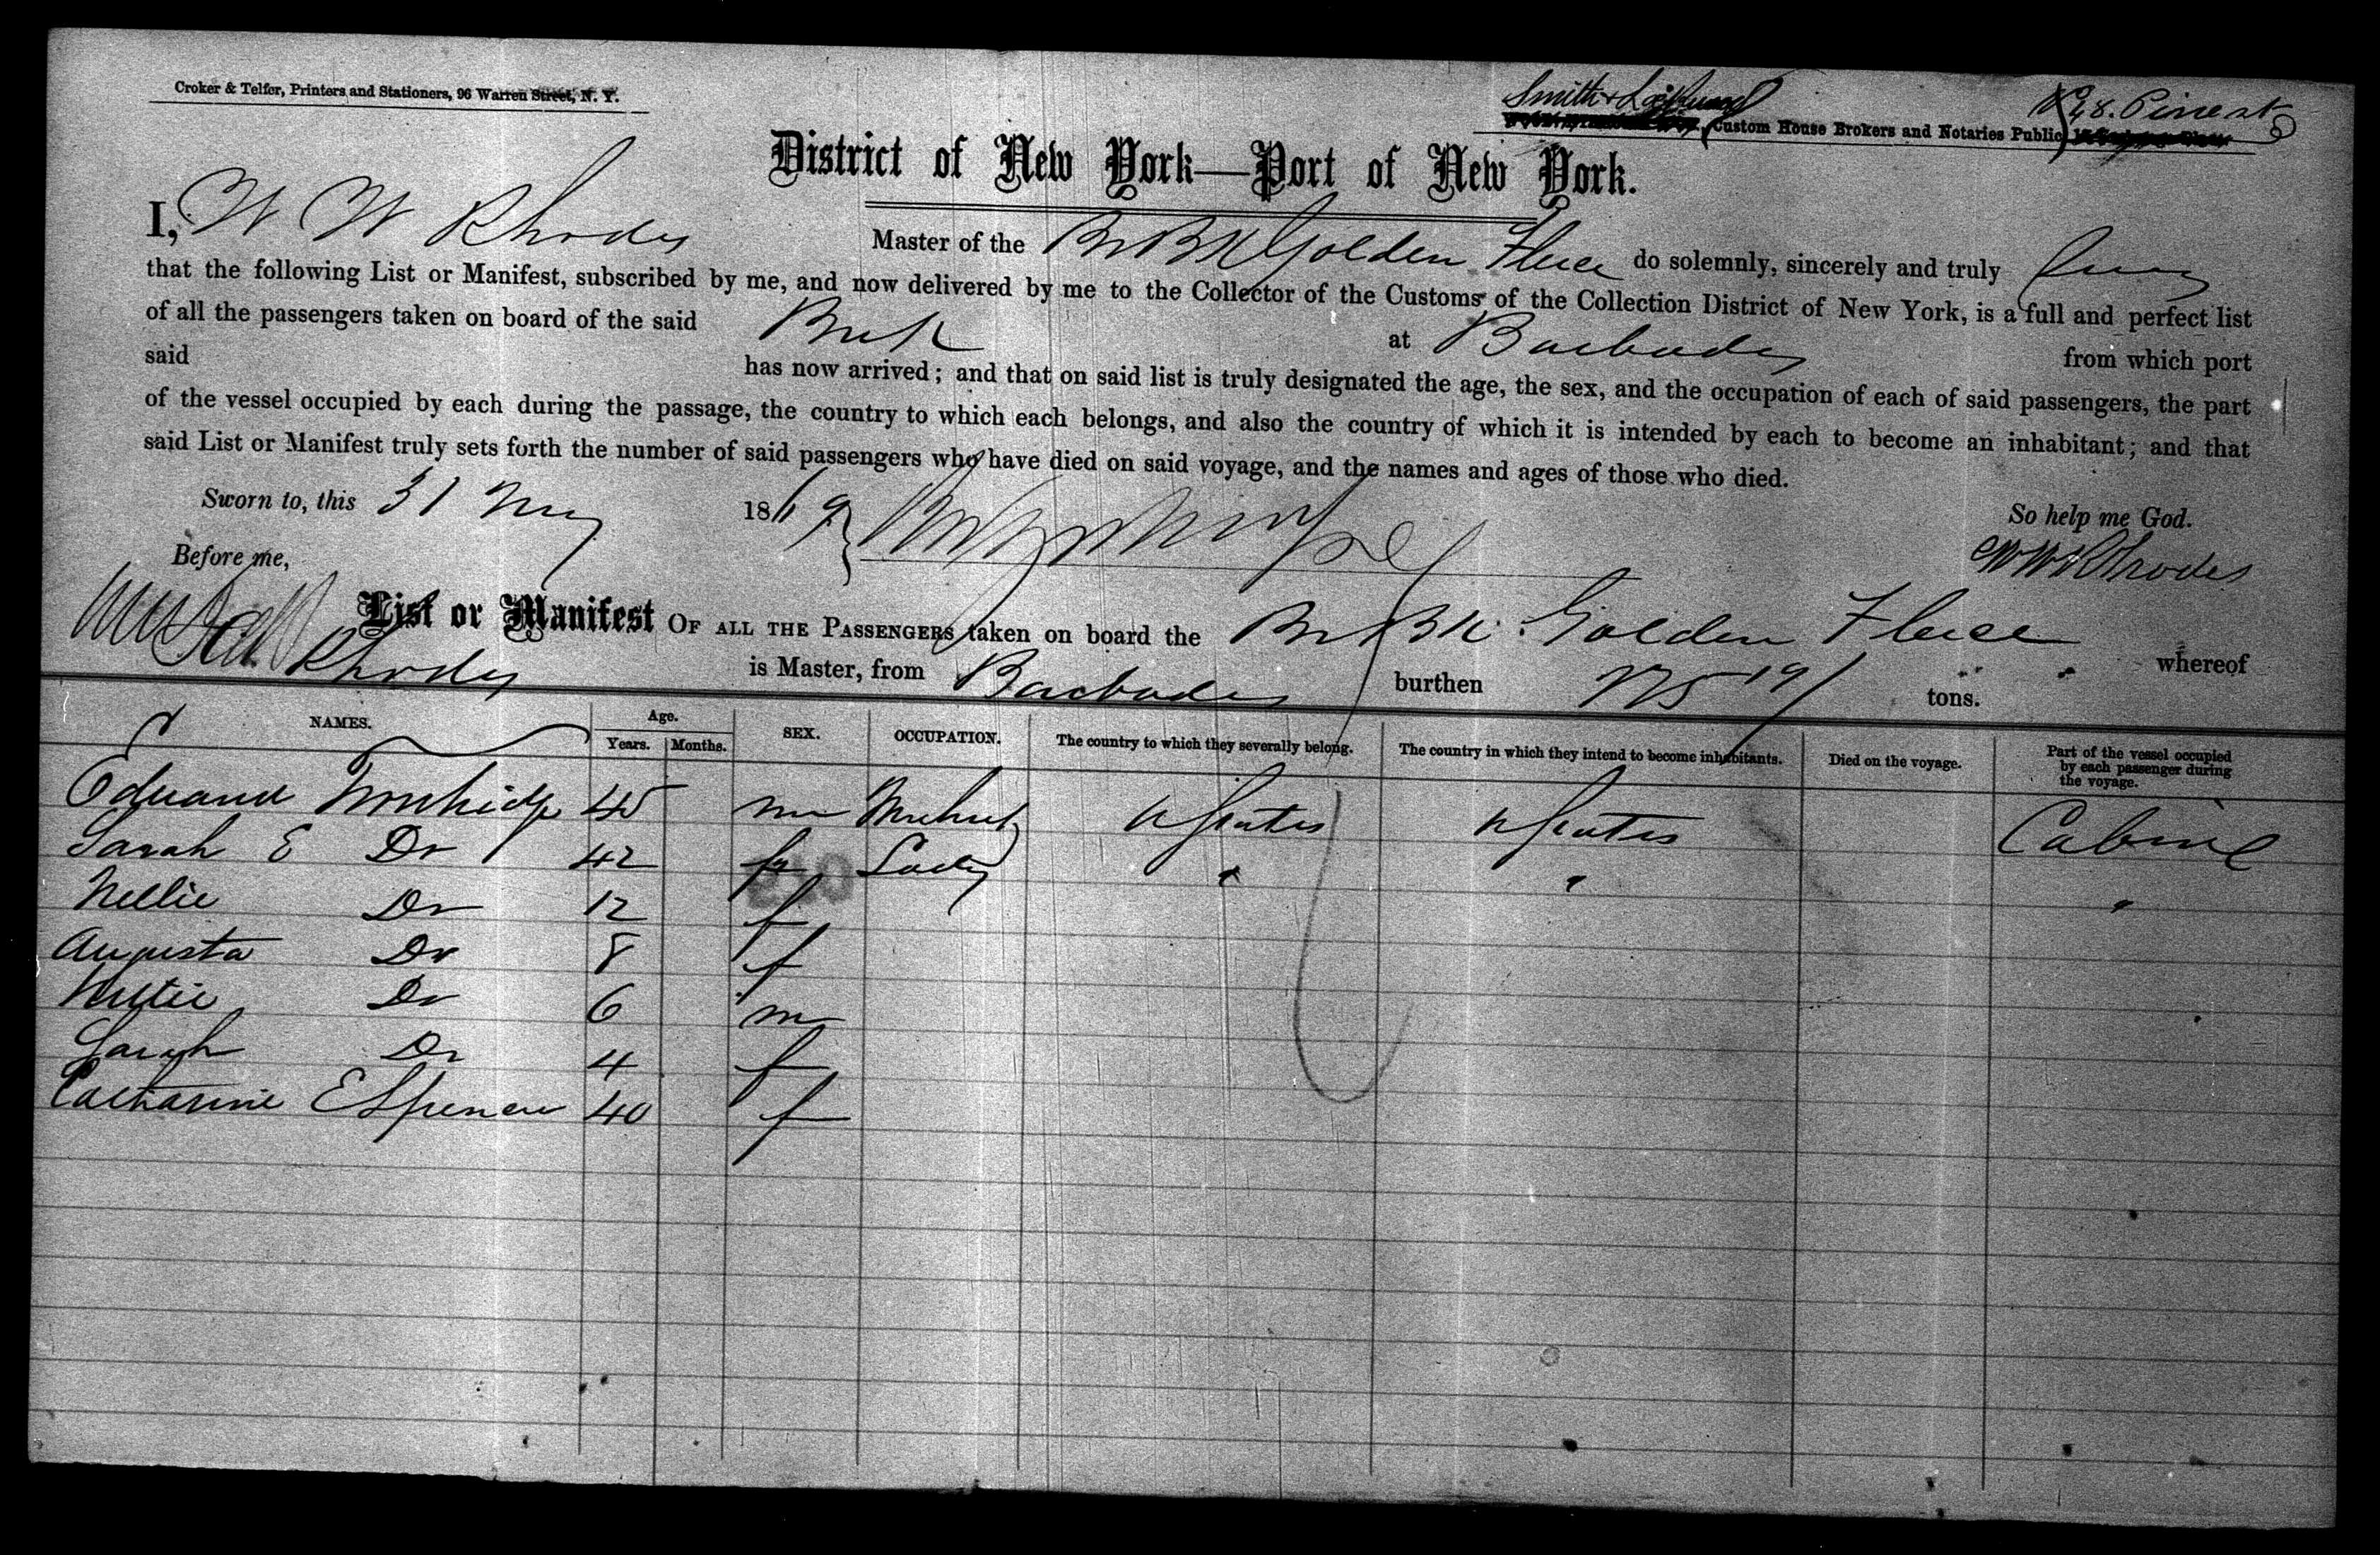 Croker & Telfer, Printers and Stationers, 96 Warren Street, N. Y.
Smith & Custom House Brokers and Notaries Public, 48. Pine st
District of New York—Port of New York.
I, W W Rhodes Master of the Br Bk Golden Fleece do solemnly, sincerely and truly
that the following List or Manifest, subscribed by me, and now delivered by me to the Collector of the Customs of the Collection District of New York, is a full and perfect list
of all the passengers taken on board of the said at Barbados from which port
said has now arrived; and that on said list is truly designated the age, the sex, and the occupation of each of said passengers, the part
of the vessel occupied by each during the passage, the country to which each belongs, and also the country of which it is intended by each to become an inhabitant; and that
said List or Manifest truly sets forth the number of said passengers who have died on said voyage, and the names and ages of those who died.
Sworn to, this 31 May 1869 So help me God.
Before me, W W Rhodes
List or Manifest OF ALL THE PASSENGERS taken on board the Br Bk Golden Fleece whereof
Rhodes is Master, from Barbados burthen tons.
NAMES. Age. Years. Months. SEX. OCCUPATION. The country to which they severally belong. The country in which they intend to become inhabitants. Died on the voyage. Part of the vessel occupied by each passenger during the voyage.
Edward 45 m U States U States Cabin
Sarah E Do 42 f Lady " " "
Nellie Do 12 f
Augusta Do 8 f
Do 6 m
Sarah Do 4 f
Catharine E Spencer 40 f